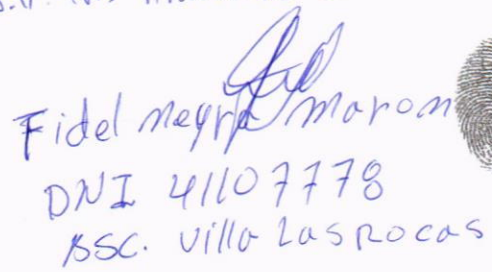 Fidel neyra maron
DNI 41107778
ASC. villa Las Rocas